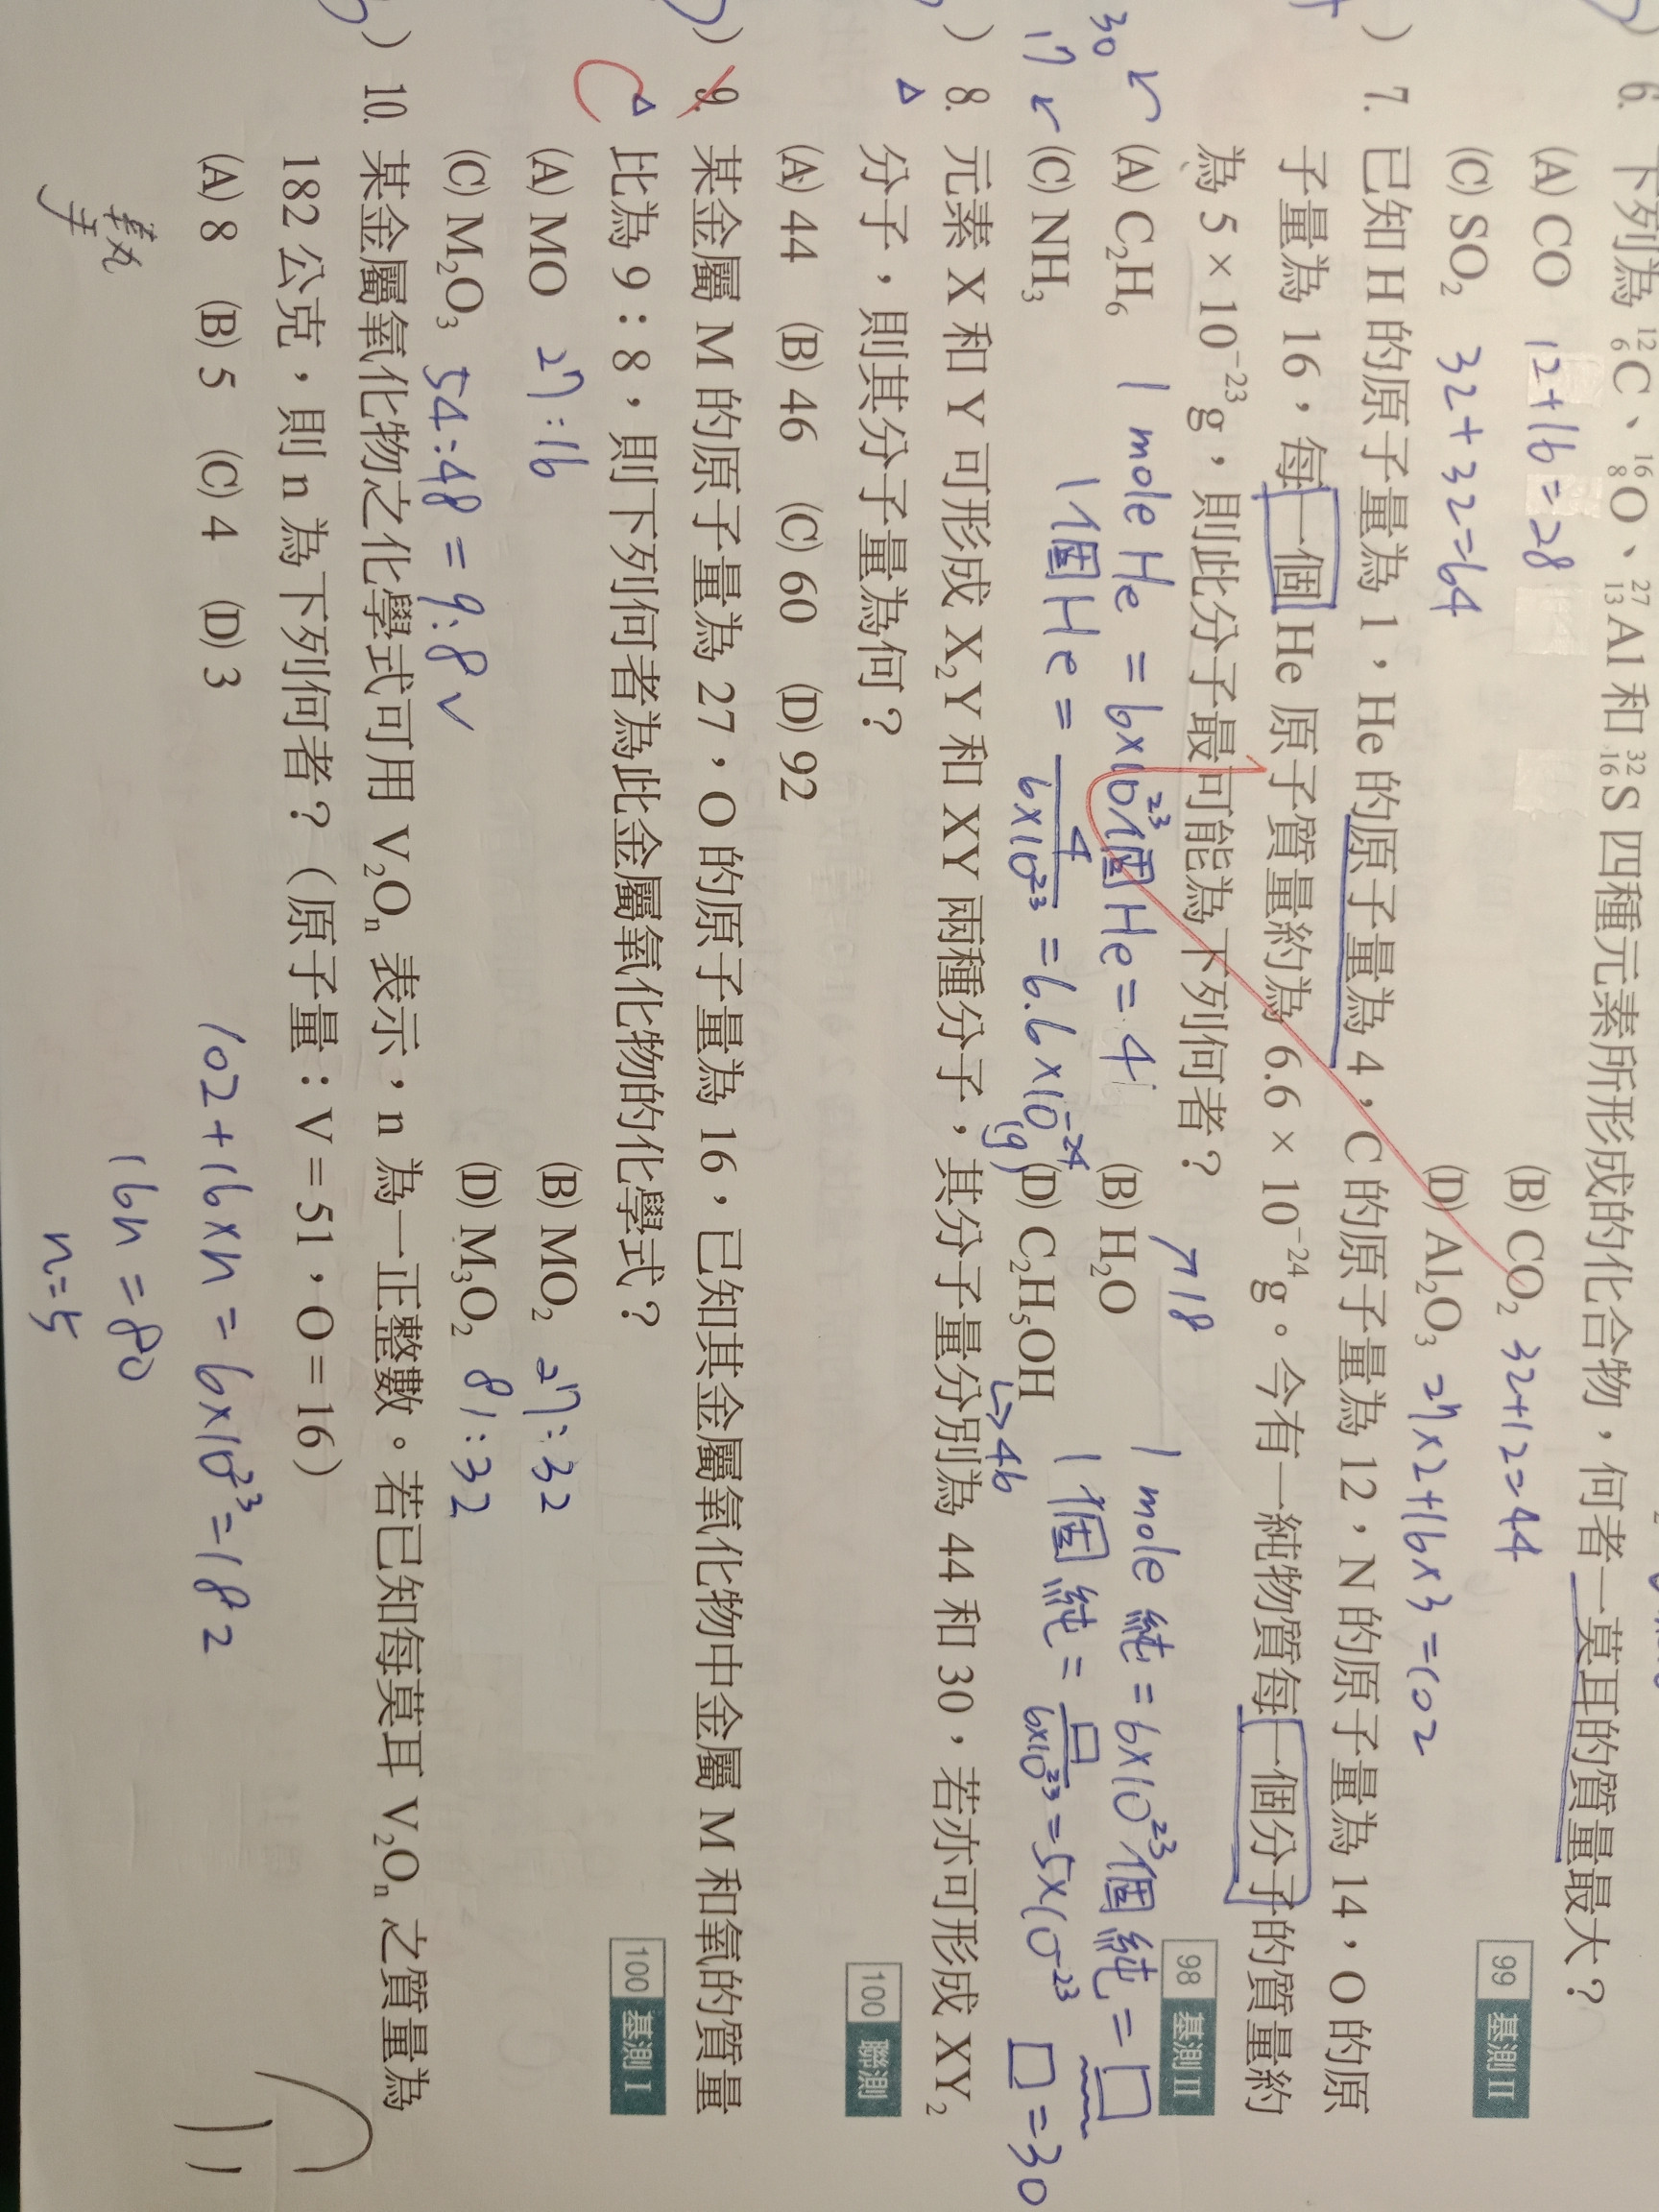 6. 下列為 ¹²₆C、¹⁶₈O、²⁷₁₃Al 和 ³²₁₆S 四種元素所形成的化合物,何者一莫耳的質量最大?
99 基測 II
(A) CO 12+16=28 (B) CO₂ 32+12=44
(C) SO₂ 32+32=64 (D) Al₂O₃ 27×2+16×3=102
7. 已知 H 的原子量為 1,He 的原子量為 4,C 的原子量為 12,N 的原子量為 14,O 的原
子量為 16,每一個 He 原子質量約為 6.6 × 10⁻²⁴ g。今有一純物質每一個分子的質量約
為 5 × 10⁻²³ g,則此分子最可能為下列何者?
98 基測 II
30
(A) C₂H₆ 1 mole He = 6×10²³個He = 4 (B) H₂O →18 1 mole 純 = 6×10²³個純 = □
17
(C) NH₃ 1個He = 4/6×10²³ = 6.6×10⁻²⁴(g) (D) C₂H₅OH →46 1個純 = □/6×10²³ = 5×10⁻²³ □=30
8. 元素 X 和 Y 可形成 X₂Y 和 XY 兩種分子,其分子量分別為 44 和 30,若亦可形成 XY₂
分子,則其分子量為何?
100 聯測
(A) 44 (B) 46 (C) 60 (D) 92
9. 某金屬 M 的原子量為 27,O 的原子量為 16,已知其金屬氧化物中金屬 M 和氧的質量
比為 9:8,則下列何者為此金屬氧化物的化學式?
100 基測 I
(A) MO 27:16 (B) MO₂ 27:32
(C) M₂O₃ 54:48=9:8 ✓ (D) M₃O₂ 81:32
10. 某金屬氧化物之化學式可用 V₂Oₙ 表示,n 為一正整數。若已知每莫耳 V₂Oₙ 之質量為
182 公克,則 n 為下列何者?(原子量:V = 51,O = 16)
(A) 8 (B) 5 (C) 4 (D) 3
102+16×n=6×10²³=182
16n=80
n=5